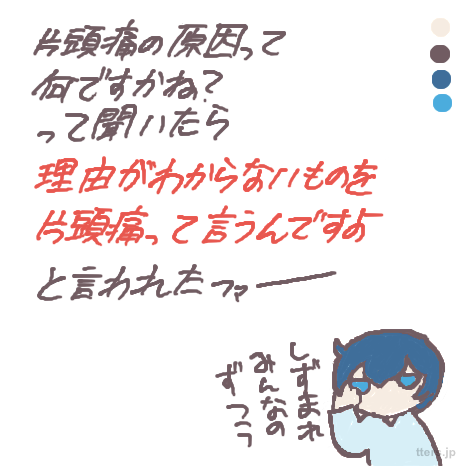 片頭痛の原因って
何ですかね?
って聞いたら
理由がわからないものを
片頭痛って言うんですよ
と言われたファー
しずまれ
みんなの
ずつう
tters.jp